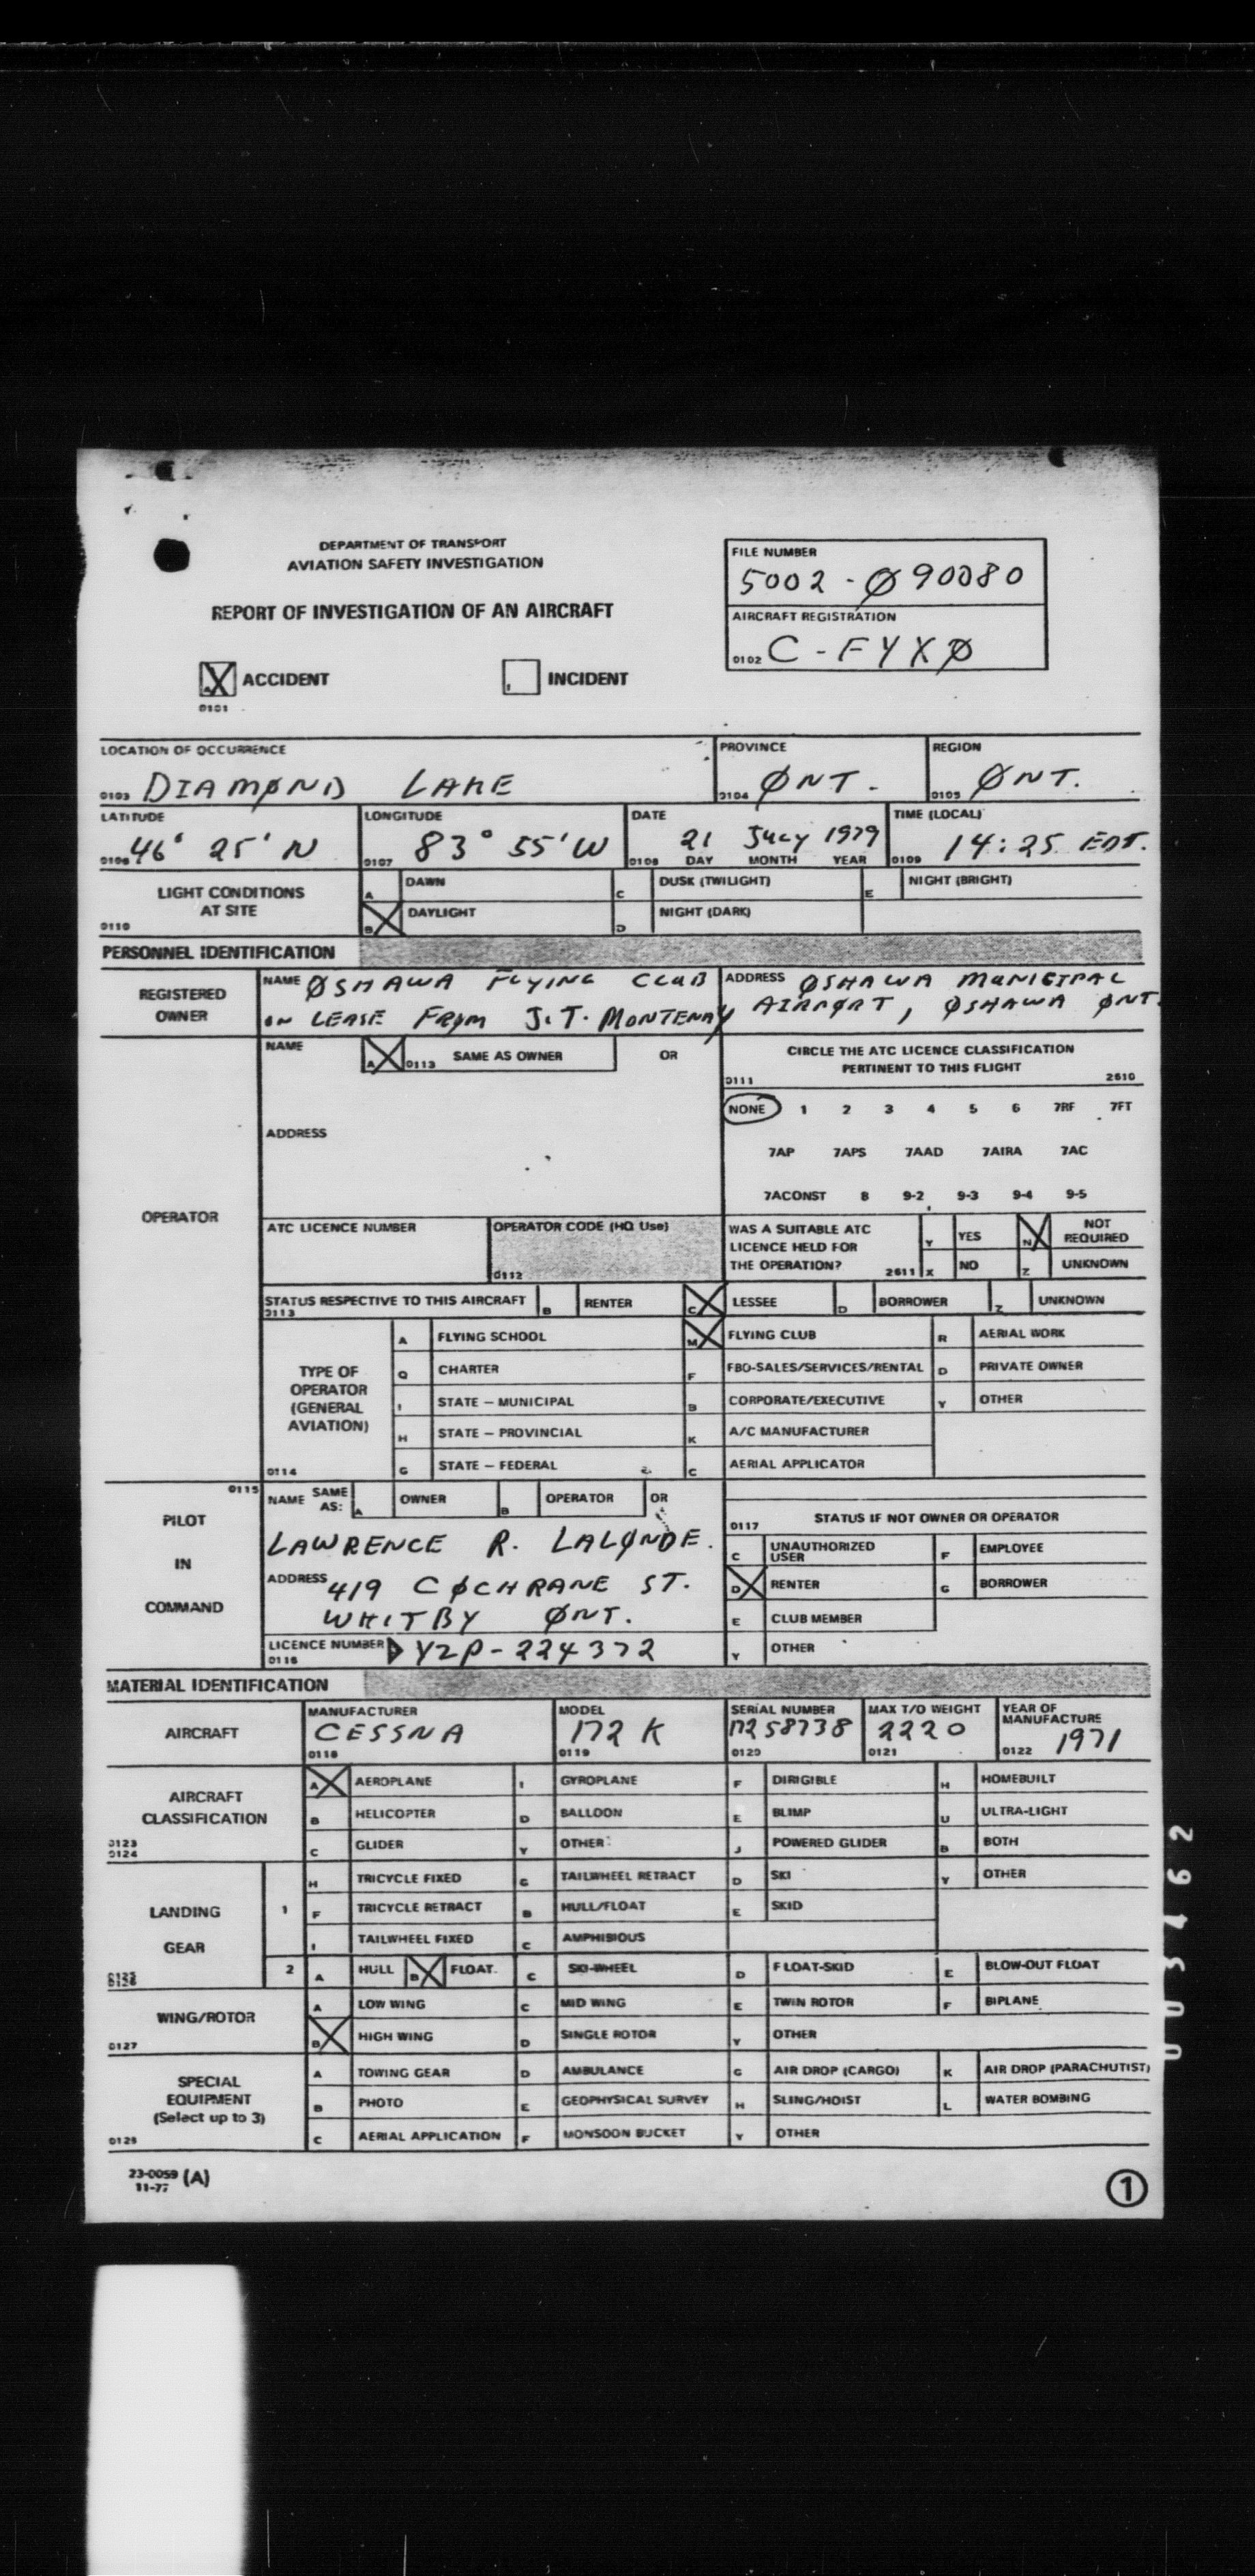 DEPARTMENT OF TRANSPORT
AVIATION SAFETY INVESTIGATION
REPORT OF INVESTIGATION OF AN AIRCRAFT
FILE NUMBER
5002-Ø90080
AIRCRAFT REGISTRATION
0102 C-FYXØ
A X ACCIDENT
0101
I INCIDENT
LOCATION OF OCCURRENCE PROVINCE REGION
0103 DIAMØND LAKE 0104 ØNT. 0105 ØNT.
LATITUDE LONGITUDE DATE TIME (LOCAL)
0106 46° 25' N 0107 83° 55' W 0108 21 July 1979 0109 14:25 EDT.
DAY MONTH YEAR
LIGHT CONDITIONS AT SITE
0110
A DAWN C DUSK (TWILIGHT) E NIGHT (BRIGHT)
B X DAYLIGHT D NIGHT (DARK)
PERSONNEL IDENTIFICATION
REGISTERED OWNER
NAME ØSHAWA FLYING CLUB ADDRESS ØSHAWA MUNICIPAL
ON LEASE FRØM J.T. MONTENAY AIRPØRT, ØSHAWA ØNT.
OPERATOR
NAME A X 0113 SAME AS OWNER OR
ADDRESS
CIRCLE THE ATC LICENCE CLASSIFICATION
PERTINENT TO THIS FLIGHT
0111 2610
NONE 1 2 3 4 5 6 7RF 7FT
7AP 7APS 7AAD 7AIRA 7AC
7ACONST 8 9-2 9-3 9-4 9-5
ATC LICENCE NUMBER OPERATOR CODE (HQ Use)
0112
WAS A SUITABLE ATC LICENCE HELD FOR THE OPERATION? 2611
Y YES N X NOT REQUIRED
X NO Z UNKNOWN
STATUS RESPECTIVE TO THIS AIRCRAFT B RENTER C X LESSEE D BORROWER Z UNKNOWN
0113
TYPE OF OPERATOR (GENERAL AVIATION)
0114
A FLYING SCHOOL M X FLYING CLUB R AERIAL WORK
Q CHARTER F FBO-SALES/SERVICES/RENTAL D PRIVATE OWNER
I STATE – MUNICIPAL B CORPORATE/EXECUTIVE Y OTHER
H STATE – PROVINCIAL K A/C MANUFACTURER
G STATE – FEDERAL C AERIAL APPLICATOR
PILOT IN COMMAND
0115
NAME SAME AS: A OWNER B OPERATOR OR
LAWRENCE R. LALØNDE.
ADDRESS 419 CØCHRANE ST.
WHITBY ØNT.
LICENCE NUMBER YZP-224372
0116
0117 STATUS IF NOT OWNER OR OPERATOR
C UNAUTHORIZED USER F EMPLOYEE
D X RENTER G BORROWER
E CLUB MEMBER
Y OTHER
MATERIAL IDENTIFICATION
AIRCRAFT
MANUFACTURER MODEL SERIAL NUMBER MAX T/O WEIGHT YEAR OF MANUFACTURE
CESSNA 172 K 17258738 2220 1971
0118 0119 0120 0121 0122
AIRCRAFT CLASSIFICATION
0123
0124
A X AEROPLANE I GYROPLANE F DIRIGIBLE H HOMEBUILT
B HELICOPTER D BALLOON E BLIMP U ULTRA-LIGHT
C GLIDER Y OTHER: J POWERED GLIDER B BOTH
LANDING GEAR
1
H TRICYCLE FIXED G TAILWHEEL RETRACT D SKI Y OTHER
F TRICYCLE RETRACT B HULL/FLOAT E SKID
I TAILWHEEL FIXED C AMPHIBIOUS
2 A HULL B X FLOAT C SKI-WHEEL D FLOAT-SKID E BLOW-OUT FLOAT
0126
WING/ROTOR
0127
A LOW WING C MID WING E TWIN ROTOR F BIPLANE
B X HIGH WING D SINGLE ROTOR Y OTHER
SPECIAL EQUIPMENT (Select up to 3)
0128
A TOWING GEAR D AMBULANCE G AIR DROP (CARGO) K AIR DROP (PARACHUTIST)
B PHOTO E GEOPHYSICAL SURVEY H SLING/HOIST L WATER BOMBING
C AERIAL APPLICATION F MONSOON BUCKET Y OTHER
23-0059 (A)
11-77
1
003462